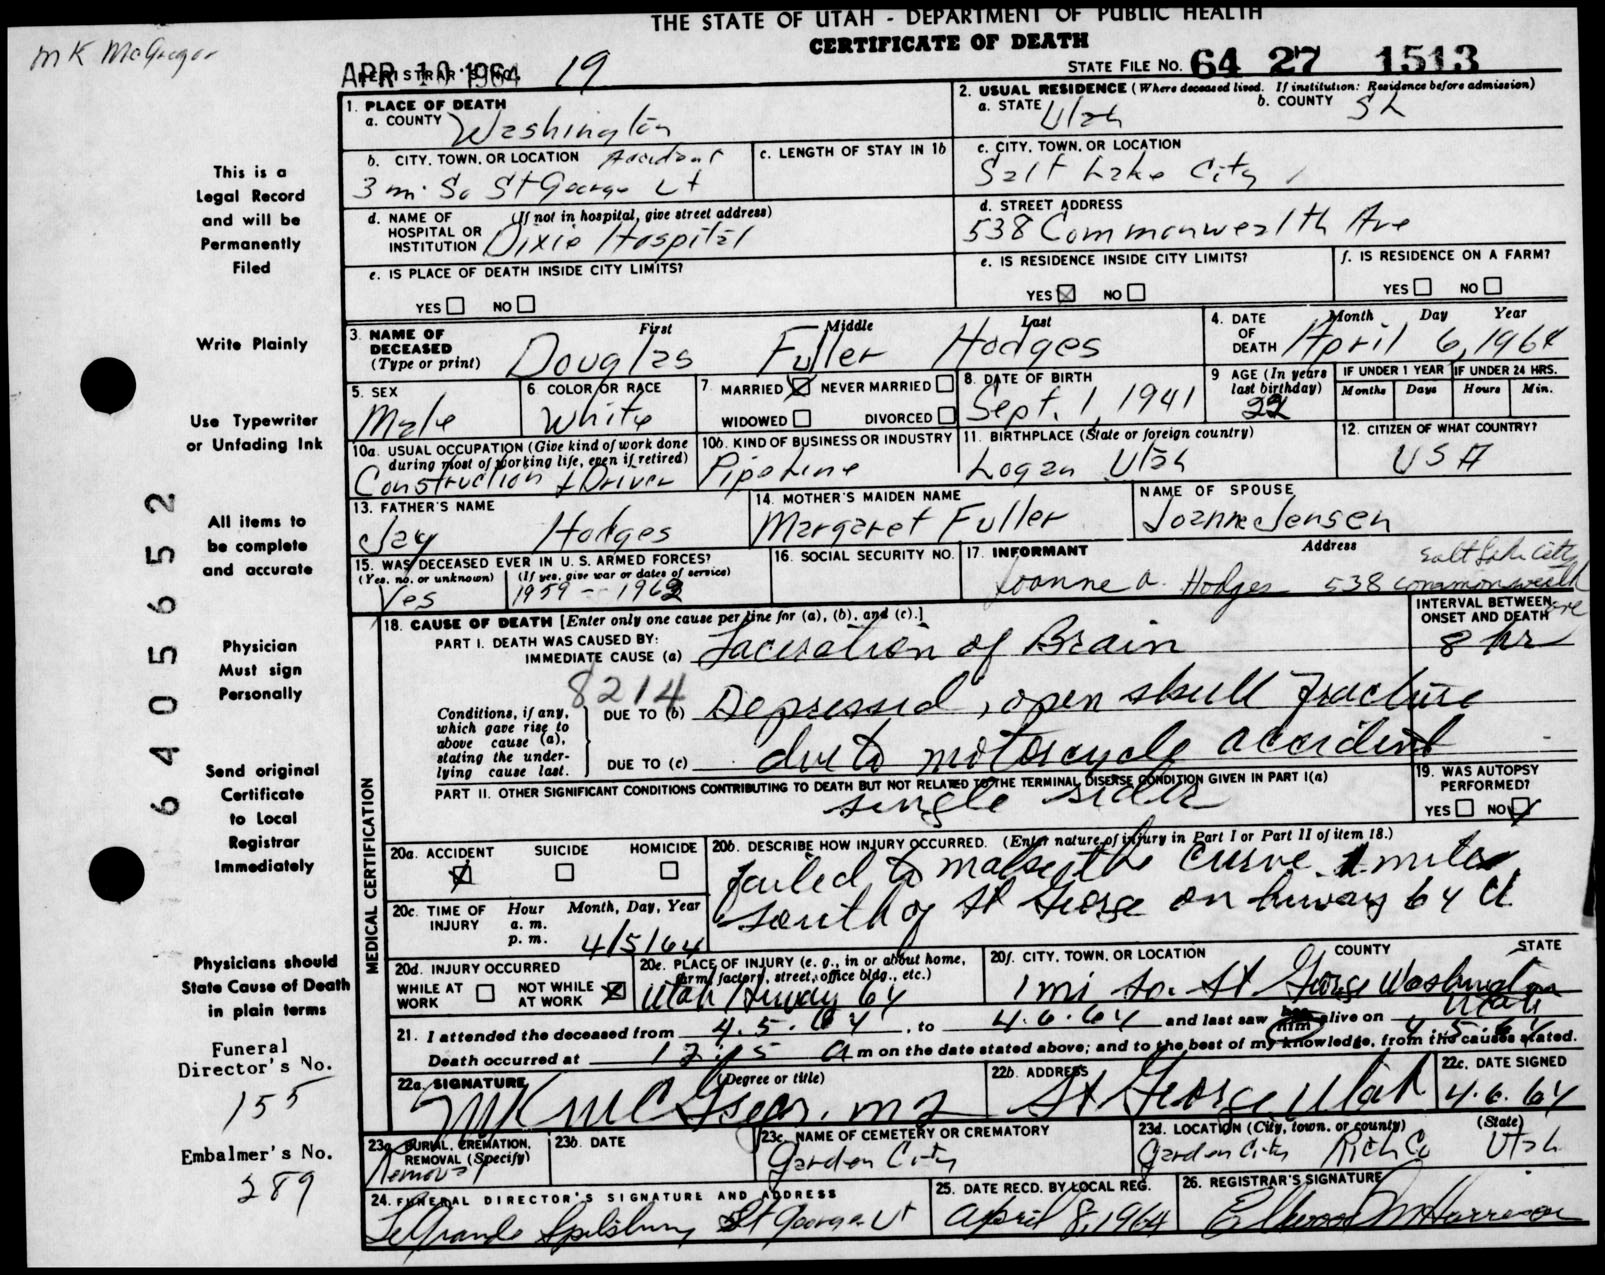 THE STATE OF UTAH - DEPARTMENT OF PUBLIC HEALTH
CERTIFICATE OF DEATH
MK McGregor
APR 10 1964
REGISTRAR'S NO. 19
STATE FILE NO. 64 27 1513
1. PLACE OF DEATH
a. COUNTY Washington
2. USUAL RESIDENCE (Where deceased lived. If institution: Residence before admission)
a. STATE Utah b. COUNTY SL
b. CITY, TOWN, OR LOCATION Accident
3 mi. So St George Ut
c. LENGTH OF STAY IN 1b
c. CITY, TOWN, OR LOCATION
Salt Lake City
d. NAME OF HOSPITAL OR INSTITUTION (If not in hospital, give street address)
Dixie Hospital
d. STREET ADDRESS
538 Commonwealth Ave
e. IS PLACE OF DEATH INSIDE CITY LIMITS?
YES NO
e. IS RESIDENCE INSIDE CITY LIMITS?
YES NO
f. IS RESIDENCE ON A FARM?
YES NO
3. NAME OF DECEASED (Type or print)
First Middle Last
Douglas Fuller Hodges
4. DATE OF DEATH Month Day Year
April 6, 1964
5. SEX
Male
6. COLOR OR RACE
White
7. MARRIED NEVER MARRIED
WIDOWED DIVORCED
8. DATE OF BIRTH
Sept. 1, 1941
9 AGE (In years last birthday)
22
IF UNDER 1 YEAR
Months Days
IF UNDER 24 HRS.
Hours Min.
10a. USUAL OCCUPATION (Give kind of work done during most of working life, even if retired)
Construction + Driver
10b. KIND OF BUSINESS OR INDUSTRY
Pipe Line
11. BIRTHPLACE (State or foreign country)
Logan Utah
12. CITIZEN OF WHAT COUNTRY?
USA
13. FATHER'S NAME
Jay Hodges
14. MOTHER'S MAIDEN NAME
Margaret Fuller
NAME OF SPOUSE
Joanne Jensen
15. WAS DECEASED EVER IN U. S. ARMED FORCES?
(Yes, no, or unknown) (If yes, give war or dates of service)
Yes 1959 - 1962
16. SOCIAL SECURITY NO.
17. INFORMANT Address
Joanne a. Hodges 538 Commonwealth Ave
Salt Lake City
18. CAUSE OF DEATH [Enter only one cause per line for (a), (b), and (c).]
PART I. DEATH WAS CAUSED BY:
IMMEDIATE CAUSE (a) Laceration of Brain
INTERVAL BETWEEN ONSET AND DEATH
8 hr
8214
Conditions, if any, which gave rise to above cause (a), stating the underlying cause last.
DUE TO (b) Depressed, open skull fracture
DUE TO (c) due to motorcycle accident
PART II. OTHER SIGNIFICANT CONDITIONS CONTRIBUTING TO DEATH BUT NOT RELATED TO THE TERMINAL DISEASE CONDITION GIVEN IN PART I(a)
single rider
19. WAS AUTOPSY PERFORMED?
YES NO
MEDICAL CERTIFICATION
20a. ACCIDENT SUICIDE HOMICIDE
20b. DESCRIBE HOW INJURY OCCURRED. (Enter nature of injury in Part I or Part II of item 18.)
failed to make the curve 1 miles
south of St George on hiway 64 Ut
20c. TIME OF INJURY Hour Month, Day, Year
a. m.
p. m. 4/5/64
20d. INJURY OCCURRED
WHILE AT WORK NOT WHILE AT WORK
20e. PLACE OF INJURY (e. g., in or about home, farm, factory, street, office bldg., etc.)
Utah Hiway 64
20f. CITY, TOWN, OR LOCATION COUNTY STATE
1 mi so. St George Washington Utah
21. I attended the deceased from 4.5.64, to 4.6.64 and last saw him alive on 4.5.64
Death occurred at 12:15 a m on the date stated above; and to the best of my knowledge, from the causes stated.
22a. SIGNATURE (Degree or title)
MK McGregor. MD
22b. ADDRESS
St George Utah
22c. DATE SIGNED
4.6.64
23a. BURIAL, CREMATION, REMOVAL (Specify)
Removal
23b. DATE
23c. NAME OF CEMETERY OR CREMATORY
Garden City
23d. LOCATION (City, town, or county) (State)
Garden City Rich Co Utah
24. FUNERAL DIRECTOR'S SIGNATURE AND ADDRESS
LeGrande Spilsbury St George Ut
25. DATE RECD. BY LOCAL REG.
April 8, 1964
26. REGISTRAR'S SIGNATURE
Harrison
This is a
Legal Record
and will be
Permanently
Filed
Write Plainly
Use Typewriter
or Unfading Ink
All items to
be complete
and accurate
Physician
Must sign
Personally
Send original
Certificate
to Local
Registrar
Immediately
Physicians should
State Cause of Death
in plain terms
Funeral
Director's No.
155
Embalmer's No.
289
64056552